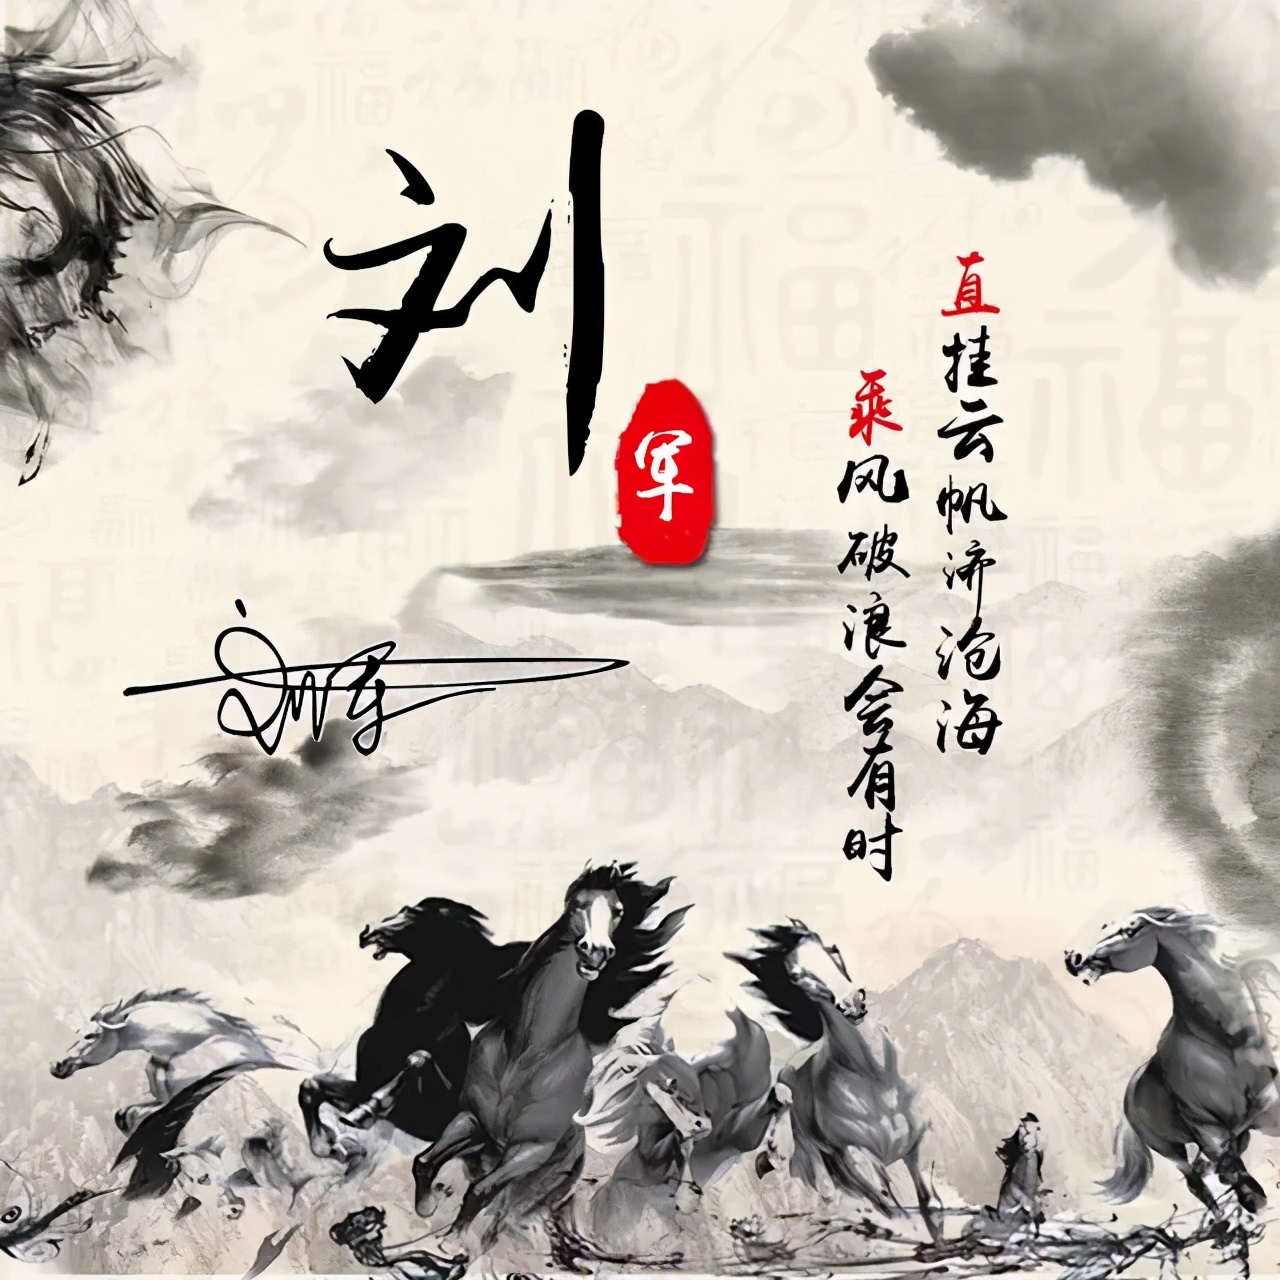 刘
军
刘军
乘风破浪会有时
直挂云帆济沧海
福